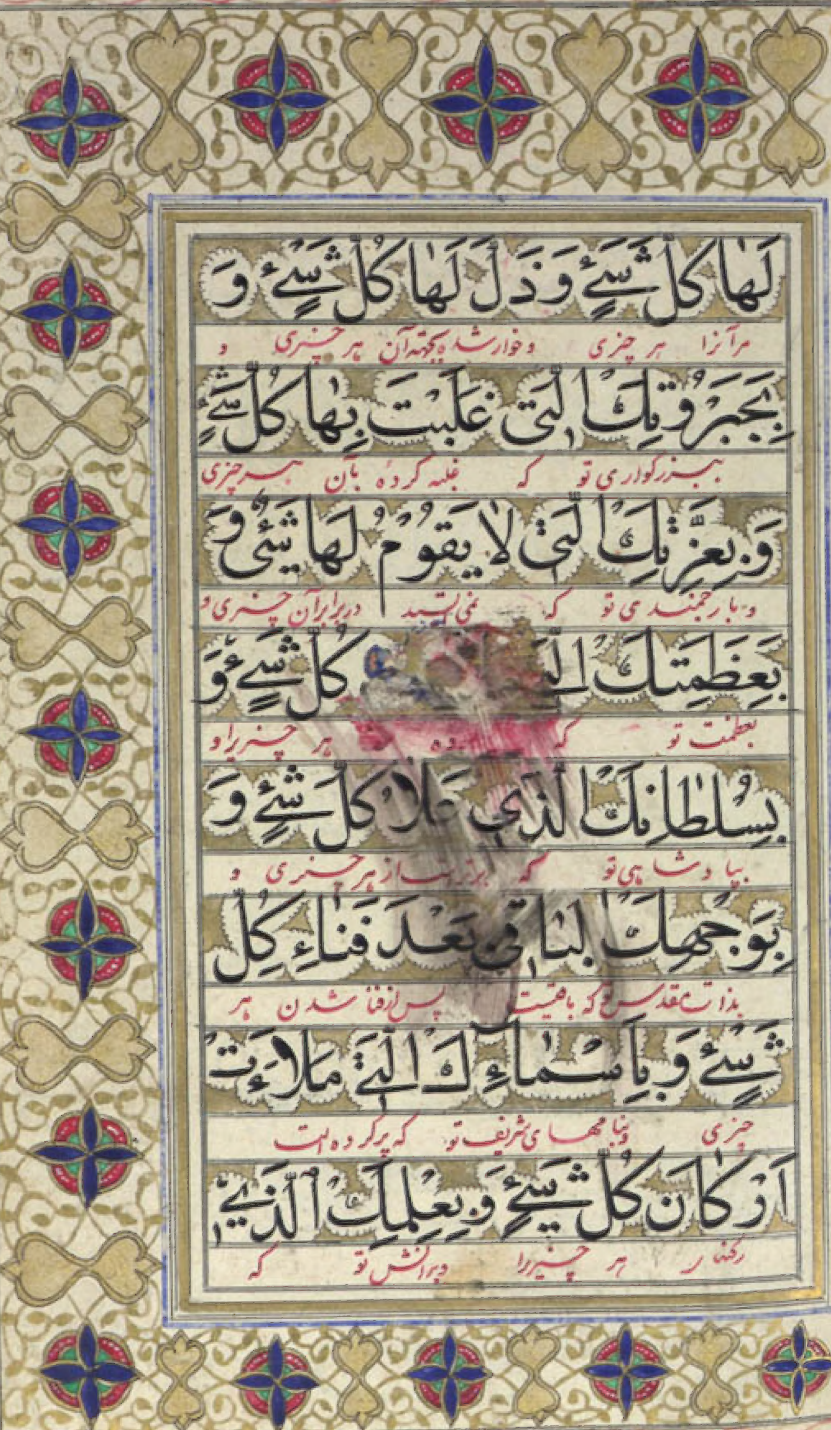 لَها كُلُّ شَىْءٍ وَذَلَّ لَها كُلُّ شَىْءٍ وَ
مرآنرا هر چیزی و خوار شده بجهة آن هر چیزی و
بِجَبَرُوتِكَ الَّتى غَلَبْتَ بِها كُلَّ شَىْءٍ
ببزرکواری تو که غلبه کردهٔ بآن هر چیزی
وَ بِعِزَّتِكَ الَّتى لا يَقُومُ لَها شَىْءٌ وَ
و بارجمندی تو که نمی‌ایستد در برابر آن چیزی و
بِعَظَمَتِكَ كُلَّ شَىْءٍ وَ
بعظمت تو که هر چیزیرا و
بِسُلْطانِكَ الَّذى عَلا كُلَّ شَىْءٍ وَ
بپادشاهی تو که برتر است از هر چیزی و
بِوَجْهِكَ الْباقى بَعْدَ فَناءِ كُلِّ
بذات مقدس تو که باقیست پس از فنا شدن هر
شَىْءٍ وَ بِاَسْماءِكَ الَّتى مَلَاَتْ
چیزی و بنامهای شریف تو که پر کرده است
اَرْكانَ كُلِّ شَىْءٍ وَ بِعِلْمِكَ الَّذى
هر چیزیرا و بدانش تو که